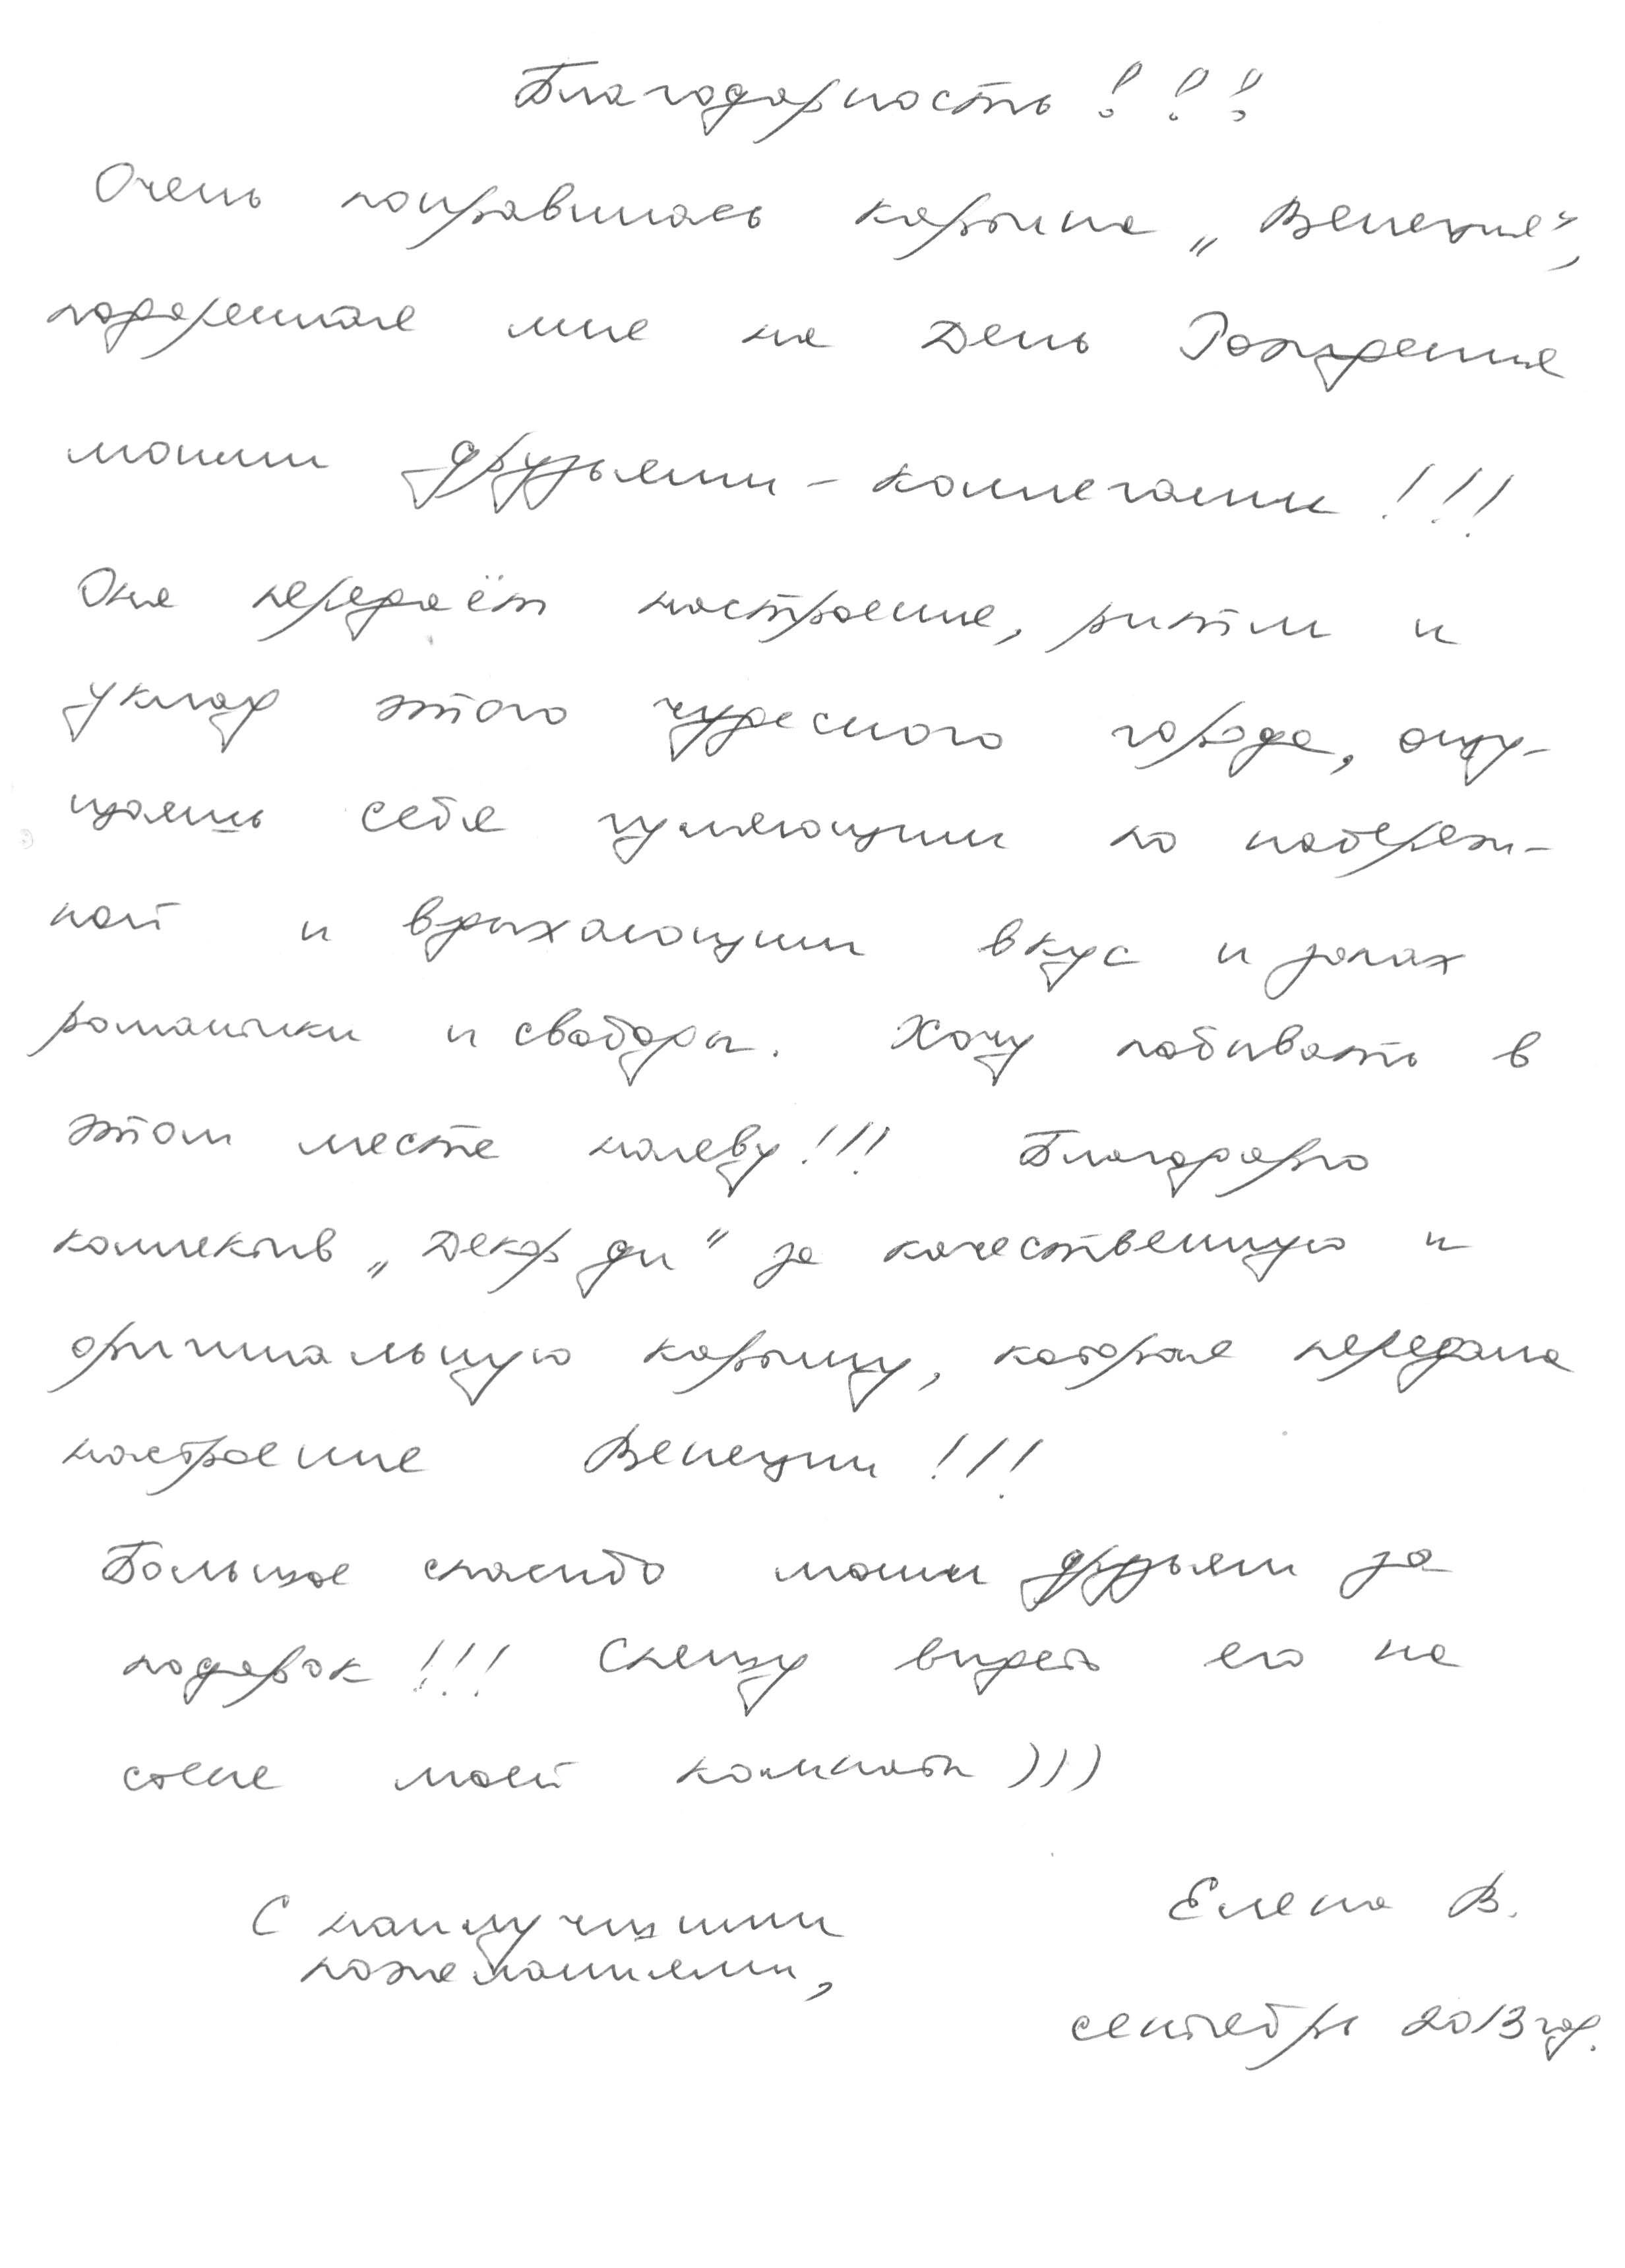 Благодарность!!!
Очень понравилась картина „Венеция",
подаренная мне на День Рождения
моими друзьями-коллегами!!!
Она передаёт настроение, ритм и
уклад этого чудесного города, ощу-
щаешь себя гуляющим по набереж-
ной и вдыхающим вкус и запах
романтики и свободы. Хочу побывать в
этом месте наяву!!! Благодарю
коллектив „Декор ди" за качественную и
оригинальную картину, которая передала
настроение Венеции!!!
Большое спасибо моим друзьям за
подарок!!! Спешу видеть его на
стене моей комнаты)))
С наилучшими
пожеланиями,
Елена В.
сентябрь 2013 год.